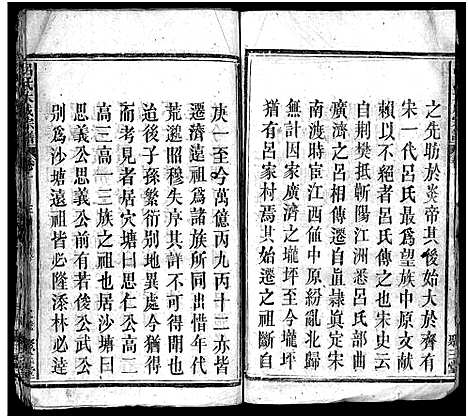 之先昉於炎帝其後始大於齊方
宋一代呂氏最爲望族中原文獻
可考見者呂氏傳之也宋史云
自荆樊抵蘄陽江洲悉呂氏部曲
廣濟之呂相傳遷自直隷真定
南渡時宦江西值中原紛亂北歸
不果因家廣濟之壠坪至今壠坪
猶有呂家村焉其始遷之祖斷自
庚一至今萬億丙九丙十二亦皆
遷濟遠祖爲諸族所同惜年代
荒遠昭穆失序其詳不可得聞也
迨後子孫繁衍別地異處今猶
而考見者居穴塘曰思仁公高一
高二高一三族之祖也居沙塘曰
思義公思義公前若俊公武公
別爲沙塘遠祖皆必隆添林必逵